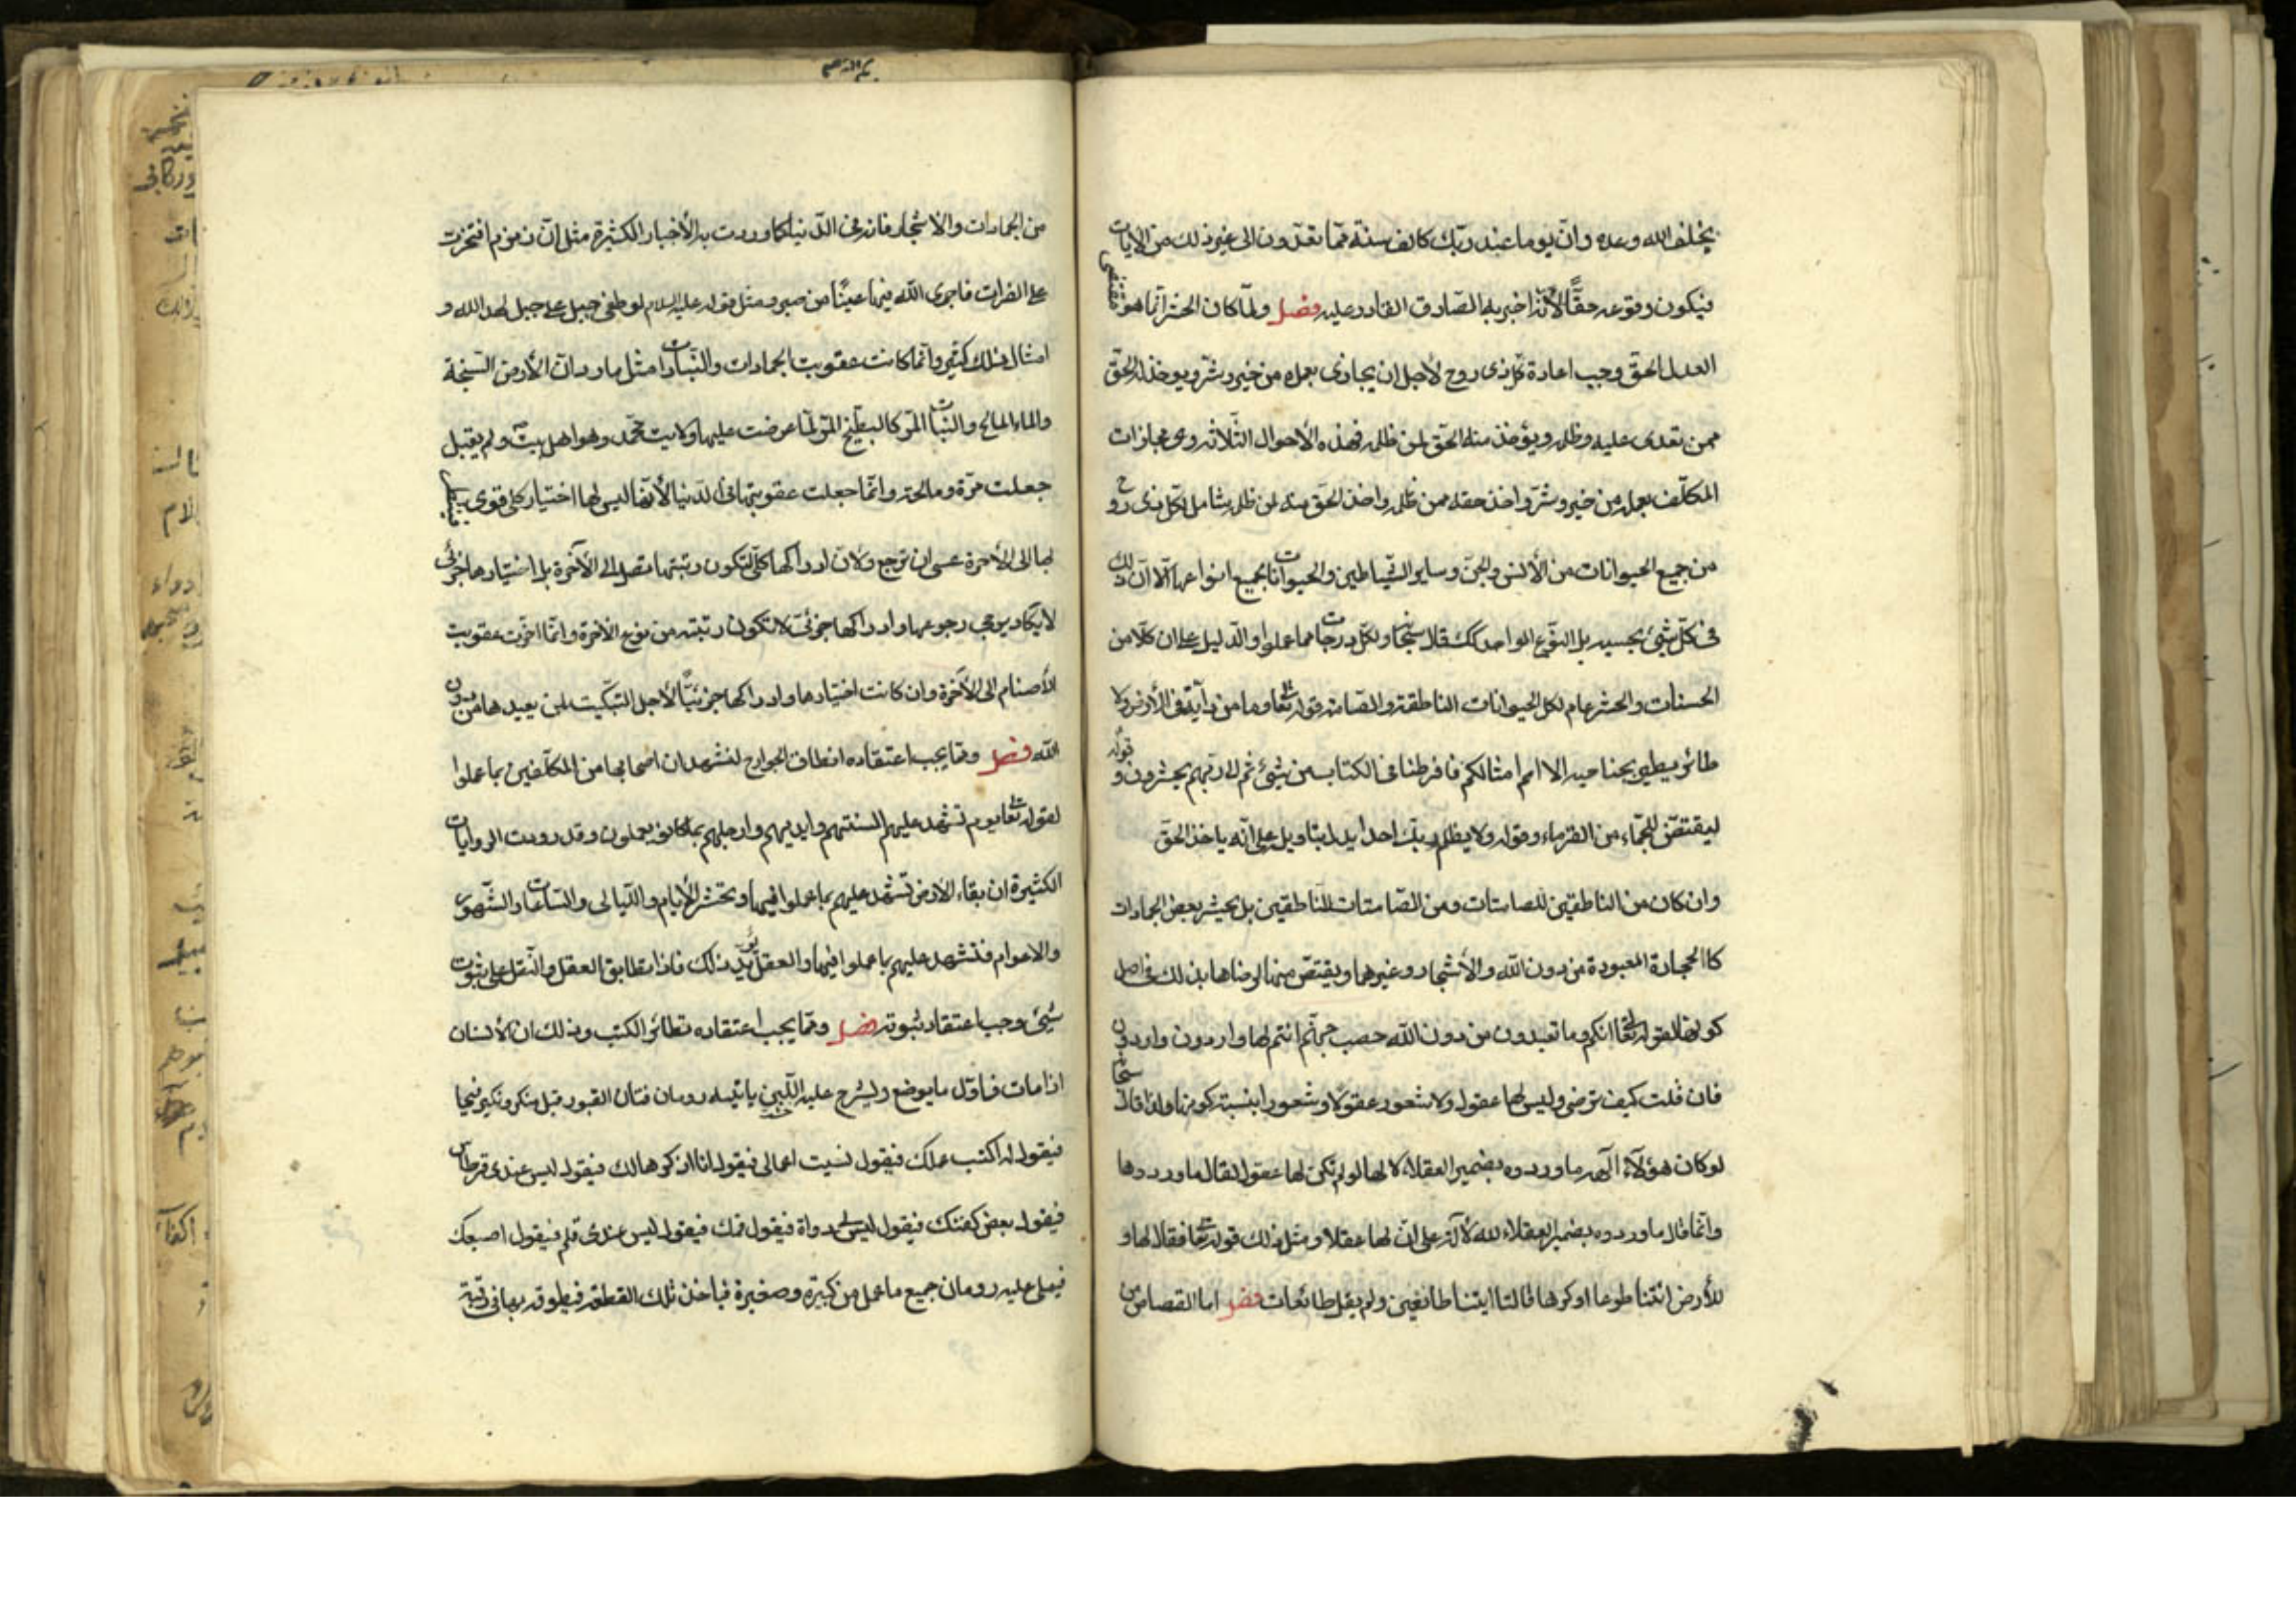 يخلف الله وعده وانّ يوما عند ربّك كالف سنة ممّا تعدّون الى غير ذلك من الايات
فيكون وقوعه حقّاً لأنّه اخبر به الصّادق القادر عليه فصل ولمّا كان الحشر انّما هو مقتضى
العدل الحقّ وجب اعادة كلّ ذى روح لأجل ان يجازى بعمله من خير وشرّ ويوخذ له الحقّ
ممن تعدى عليه وظلمه ويؤخذ منه الحقّ لمن ظلمه فهذه الأحوال الثّلاثه وهى مجازات
المكلّف بعمله من خير وشرّ واخذ حقه ممن ظلمه واخذ الحقّ منه لمن ظلمه شامل لكلّ ذى روح
من جميع الحيوانات من الأنس والجنّ وساير الشّياطين والحيوانات بجميع انواعها الّا انّ ذلك
فى كلّ شيئ بحسبه بل النّوع الواحد كك قال سبحانه ولكل درجات مما عملوا والدّليل على ان كلّا من
الحسنات والحشر عام لكل الحيوانات الناطقة والصّامته قوله تعالى وما من دآبّة فى الأرض ولا
طائر يطير بجناحيه الا امم امثالكم ما فرطنا فى الكتاب من شيئ ثم الى ربّهم يحشرون وقوله
ليقتصّنّ للجمّاء من القرناء وقوله ولا يظلم ربّك احدا يدل بتاويل على انّه ياخذ الحقّ
وان كان من الناطقين للصامتات ومن الصّامتات للنّاطقين بل يحشر بعض الجمادات
كاالحجارة المعبودة من دون اللّه والأشجار وغيرهما ويقتصّ منها لرضاها بذلك فى اصل
كونها لقوله تعالى انكم وما تعبدون من دون اللّه حصب جهنّم انتم لها واردون واردون
فان قلت كيف ترضى وليس لها عقول ولا شعور عقولا وشعورا بنسبة كونها ولذا قال سبحانه
لوكان هؤلآء الهة ما وردوه بضمير العقلاء لا لها لو لم تكن لها عقول لقال ما وردها
وانّما قال ما وردوه بضمير العقلاء للدلالة على انّ لها عقلا ومثل ذلك قوله تعالى فقال لها و
للأرض ائتنا طوعا اوكرها قالتا ايتنا طائعين ولم يقل طائعات فصل اما القصاص من
من الجمادات والاشجار فانه فى الدّنيا كما وردت به الأخبار الكثيرة مثل انّ زمزم افتخرت
على الفرات فاجرى اللّه فيها عينًا من صبر ومثل قوله عليه السلام لو طغى جبل على جبل لهده الله و
امثال ذلك كثير وانّما كانت عقوبت الجمادات والنّباتات مثل ما ورد انّ الأرض السّبخة
والماء المالح والنّبات المرّ كالبطّيخ المرّ لمّا عرضت عليها ولايت محمّد وهو اهل بيته ولم يقبل
جعلت مرّة ومالحة وانّما جعلت عقوبتها فى الدّنيا لأنّها ليس لها اختيار كلى قوى
لها الى الأخرة عسى ان ترجع ولان ادراكها كلّى لتكون رتبتها متصل الى الآخرة بل اختيارها جزئى
لا يكاد يوجب رجوعها وادراكها جزئى لا تكون رتبته من نوع الاخرة وانّما اخرّت عقوبت
الأصنام الى الآخرة وان كانت اختيارها وادراكها جزئيًّا لأجل التبكيت لمن يعبدها من دون
اللّه فصل وممّا يجب اعتقاده انطاق الجوارح لتشهد ان اصحابها من المكلّفين بما عملوا
لقوله تعالى يوم تشهد عليهم السنتهم وايديهم وارجلهم بما كانو يعملون وقد رويت الروايات
الكثيرة ان بقاء الارض تشهد عليهم بما عملوا فيها وتحشر الأيام واللّيالى والسّاعات والشّهور
والاعوام فتشهد عليهم بما عملوا فيها والعقل يؤيّد ذلك فاذا تطابق العقل والنّقل على ثبوت
شيئ وجب اعتقاد ثبوته فصل وممّا يجب اعتقاده تطائر الكتب وذلك انّ الأنسان
اذا مات فاوّل ما يوضع وليشرج عليه اللّبن ياتيه رومان فتان القبور قبل منكر ونكير فيحيا
فيقول له اكتب عملك فيقول نسيت اعمالى فيقول انا اذكرها لك فيقول ليس عندى قرطاس
فيقول بعض كفنك فيقول ليس لى دواة فيقول فمك فيقول ليس عندى قلم فيقول اصبعك
فيملى عليه رومان جميع ما عمل من كبيرة وصغيرة فياخذ تلك القطعة فيطوقه بها فى رقبته